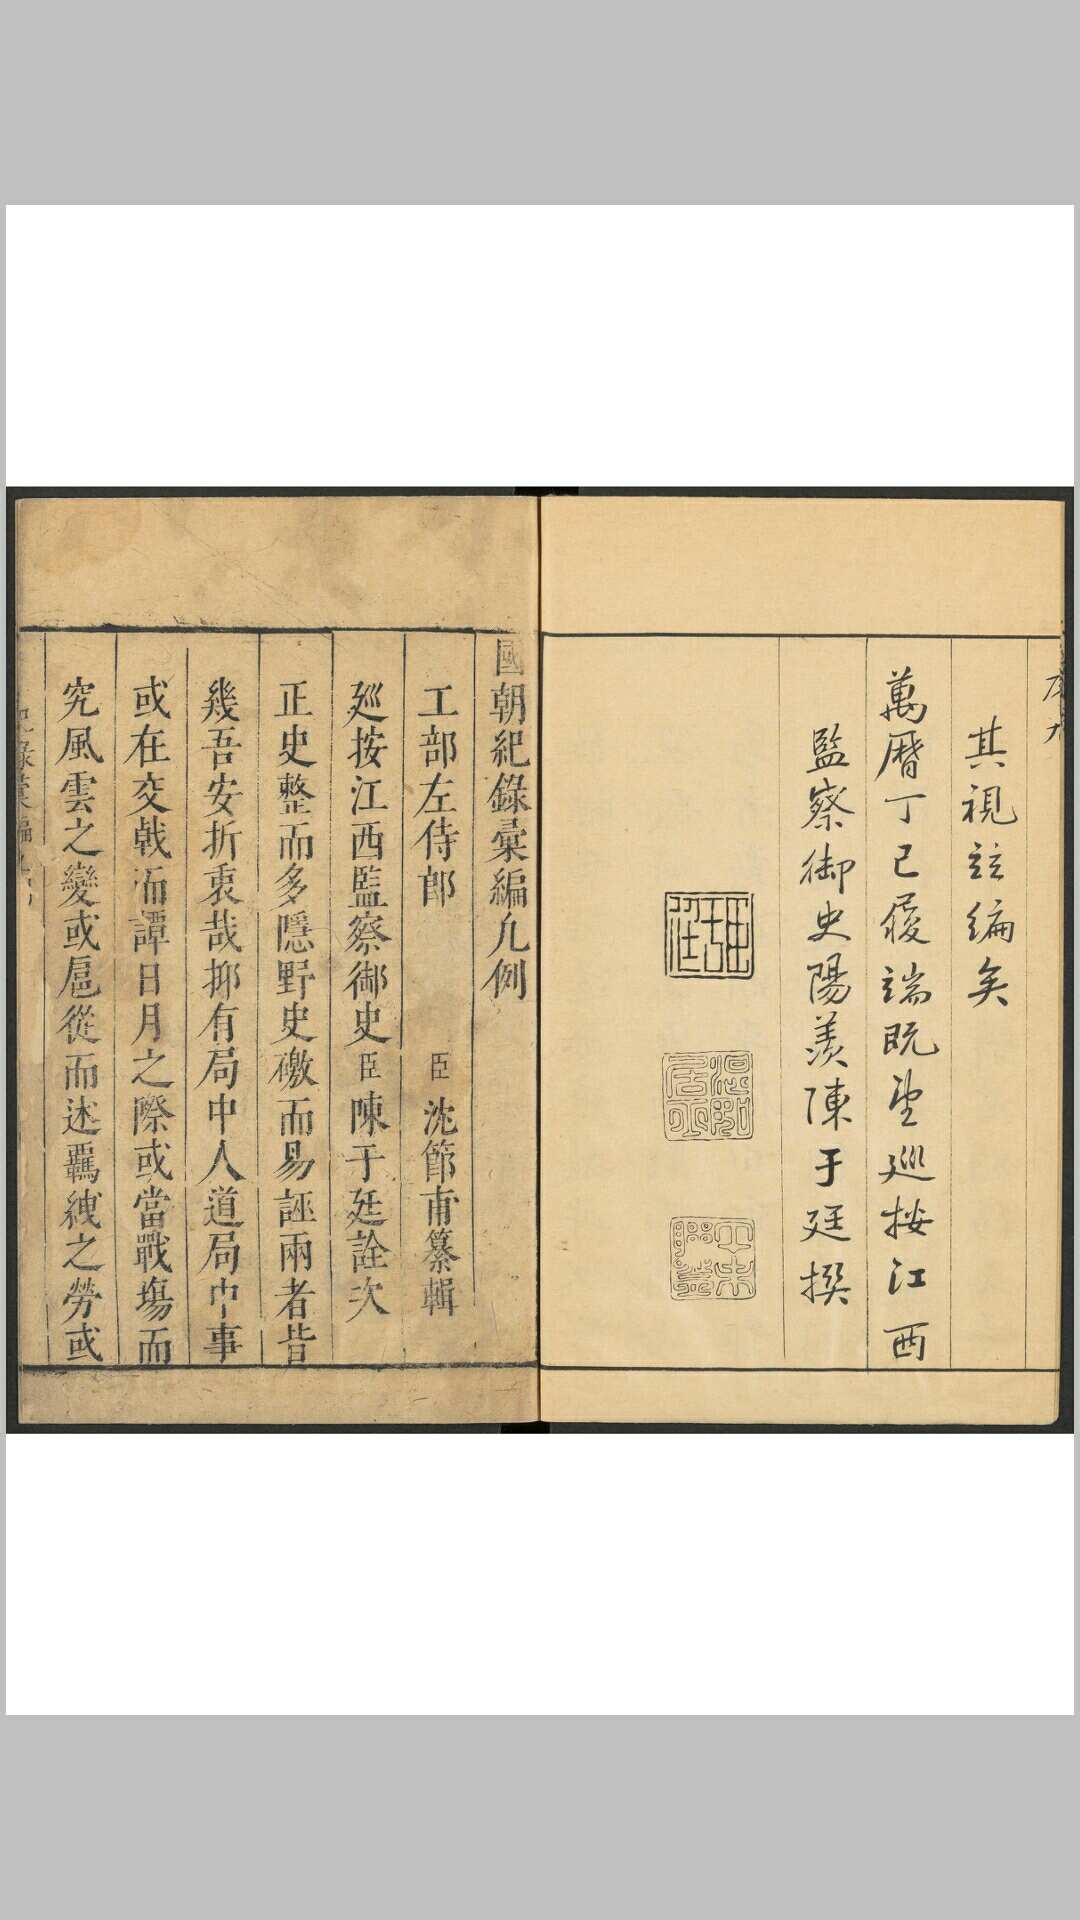 其視茲編矣
萬曆丁巳履端既望巡按江西
監察御史陽羨陳于廷撰
國朝紀錄彙編凡例
工部左侍郎臣沈節甫纂輯
廵按江西監察御史臣陳于廷詮次
正史整而多隱野史覈而易誣兩者皆
幾吾安折衷哉抑有局中人道局中事
或在交戟而譚日月之際或當戰塲而
究風雲之變或扈從而述羈絏之勞或